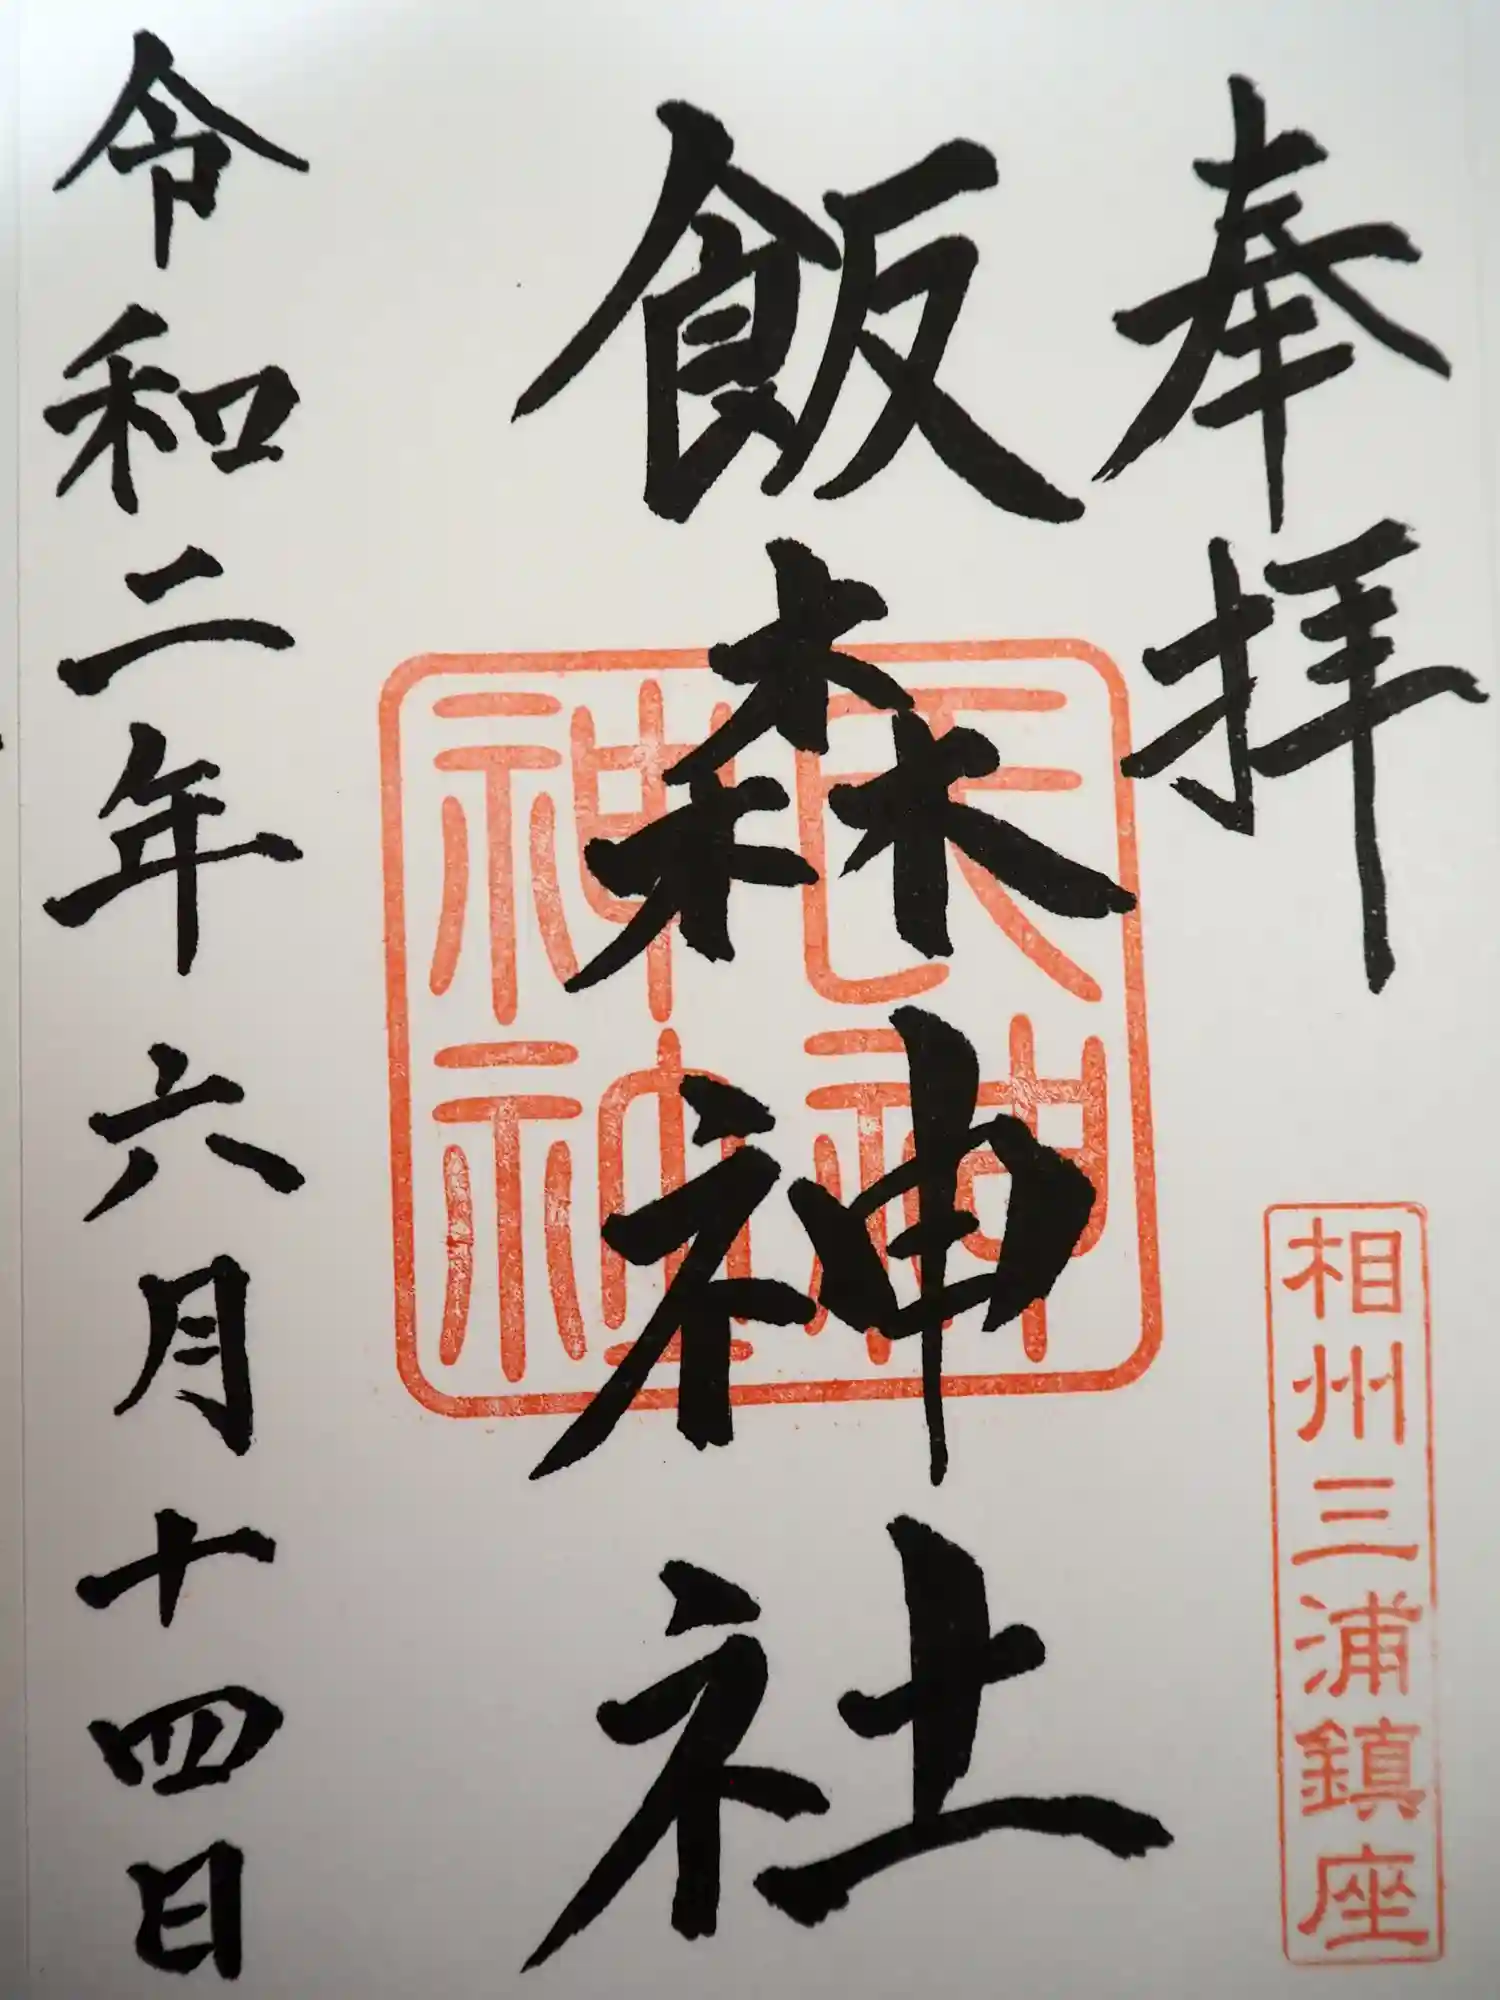 奉拝
相州三浦鎮座
飯森神社
天神神社
令和二年六月十四日